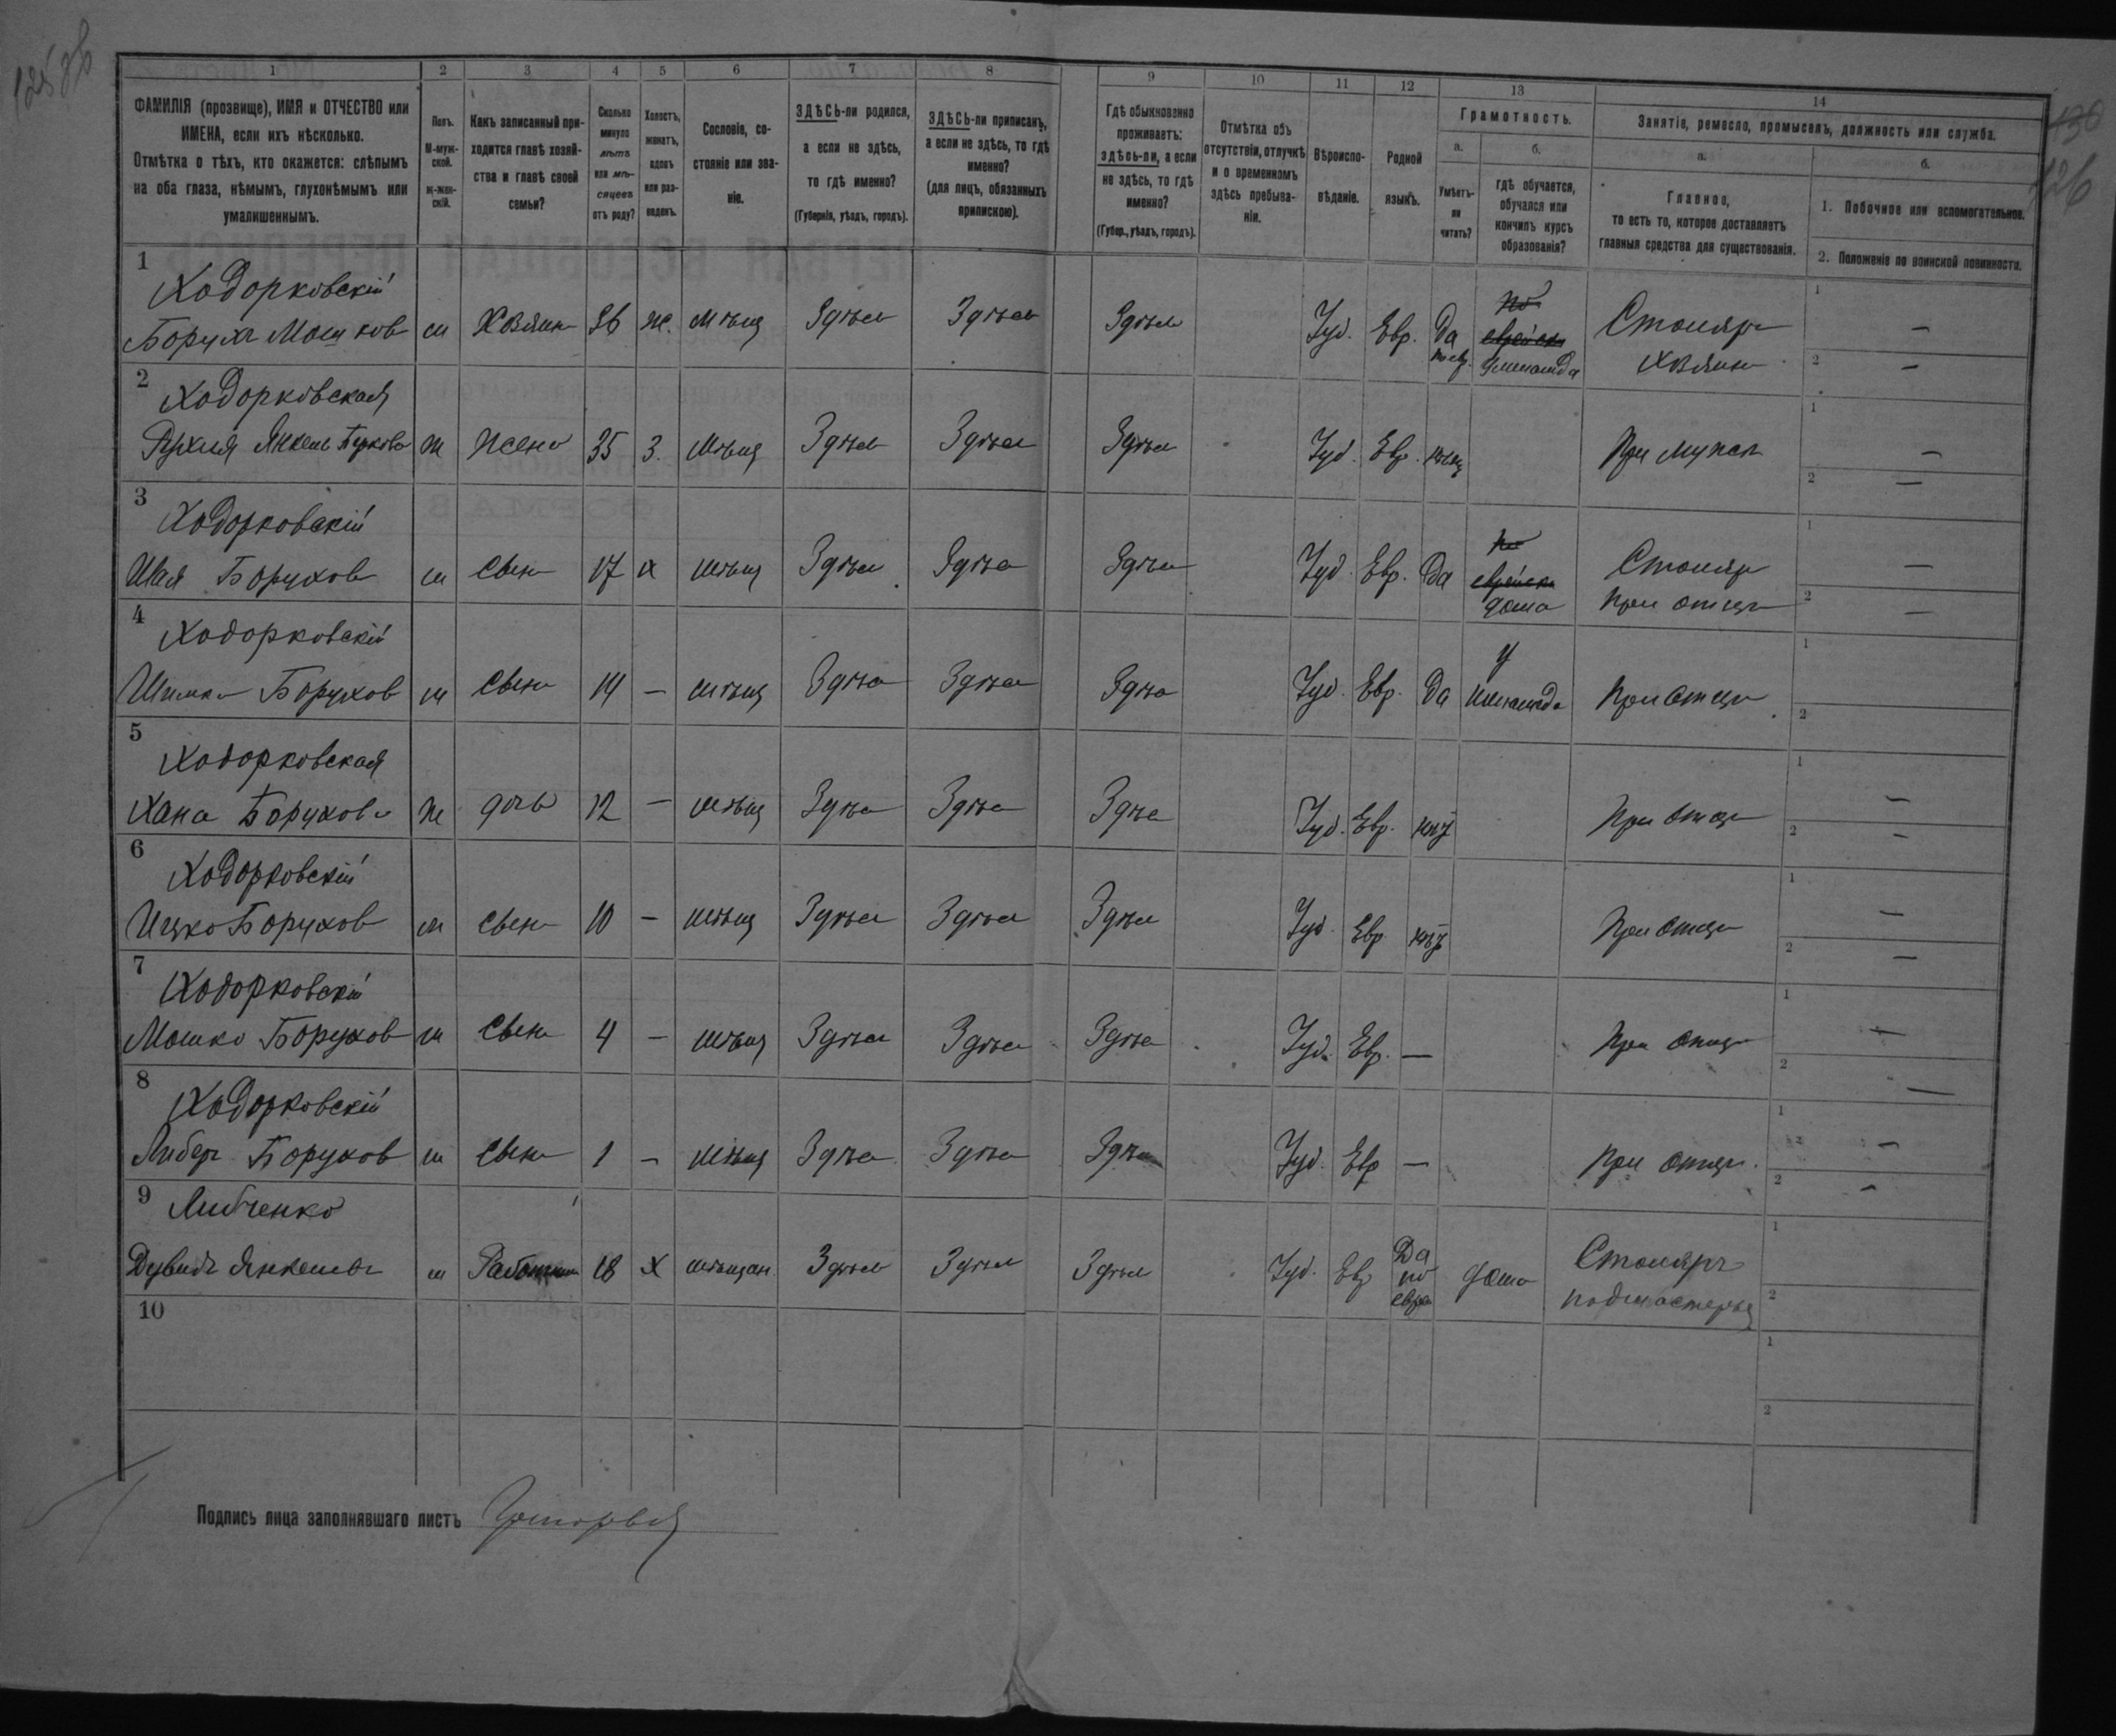 125 об
130
126
1 2 3 4 5 6 7 8 9 10 11 12 13 14
ФАМИЛІЯ (прозвище), ИМЯ и ОТЧЕСТВО или
ИМЕНА, если ихъ нѣсколько.
Отмѣтка о тѣхъ, кто окажется: слѣпымъ
на оба глаза, нѣмымъ, глухонѣмымъ или
умалишеннымъ.
Полъ.
М-муж-
ской.
ж-жен-
скій.
Какъ записанный при-
ходится главѣ хозяй-
ства и главѣ своей
семьи?
Сколько
минуло
лѣтъ
или мѣ-
сяцевъ
отъ роду?
Холостъ,
женатъ,
вдовъ
или раз-
веденъ.
Сословіе, со-
стояніе или зва-
ніе.
ЗДѢСЬ-ли родился,
а если не здѣсь,
то гдѣ именно?
(Губернія, уѣздъ, городъ).
ЗДѢСЬ-ли приписанъ,
а если не здѣсь, то гдѣ
именно?
(для лицъ, обязанныхъ
припискою).
Гдѣ обыкновенно
проживаетъ:
здѣсь-ли, а если
не здѣсь, то гдѣ
именно?
(Губер., уѣздъ, городъ).
Отмѣтка объ
отсутствіи, отлучкѣ
и о временномъ
здѣсь пребыва-
ніи.
Вѣроиспо-
вѣданіе.
Родной
языкъ.
Грамотность.
а.
Умѣетъ-
ли
читать?
б.
гдѣ обучается,
обучался или
кончилъ курсъ
образованія?
Занятіе, ремесло, промыселъ, должность или служба.
а.
Главное,
то есть то, которое доставляетъ
главныя средства для существованія.
б.
1. Побочное или вспомогательное.
2. Положеніе по воинской повинности.
1 Ходорковскій
Борухъ Мошков м Хозяин 36 ж. мѣщ Здѣсь Здѣсь Здѣсь Іуд. Евр. Да по евр. По еврейски у меламеда Столяръ хозяин 1 — 2 —
2 Ходорковская
Рухля Янкель Беркова ж жена 35 З. мѣщ Здѣсь Здѣсь Здѣсь Іуд. Евр. нѣтъ При мужѣ 1 — 2 —
3 Ходорковскій
Шая Борухов м сын 17 х мѣщ Здѣсь Здѣсь Здѣсь Іуд. Евр. Да По еврейски дома Столяр При отцѣ 1 — 2 —
4 Ходорковскій
Шимон Борухов м сын 14 — мѣщ Здѣсь Здѣсь Здѣсь Іуд. Евр. Да у меламеда При отцѣ 1 2
5 Ходорковская
Хана Борухова ж дочь 12 — мѣщ Здѣсь Здѣсь Здѣсь Іуд. Евр. нѣт При отцѣ 1 — 2 —
6 Ходорковскій
Ицко Борухов м сын 10 — мѣщ Здѣсь Здѣсь Здѣсь Іуд. Евр нѣт При отцѣ 1 — 2 —
7 Ходорковскій
Мошко Борухов м сын 4 — мѣщ Здѣсь Здѣсь Здѣсь Іуд. Евр. — При отцѣ 1 — 2 —
8 Ходорковскій
Либер Борухов м сын 1 — мѣщ Здѣсь Здѣсь Здѣсь Іуд. Евр — При отцѣ. 1 — 2 —
9 Либченко
Дувидъ Янкелев м Работник 18 х мѣщан Здѣсь Здѣсь Здѣсь Іуд. Евр Да по евр дома Столяръ подмастерья 1 2
10 1 2
Подпись лица заполнявшаго листъ